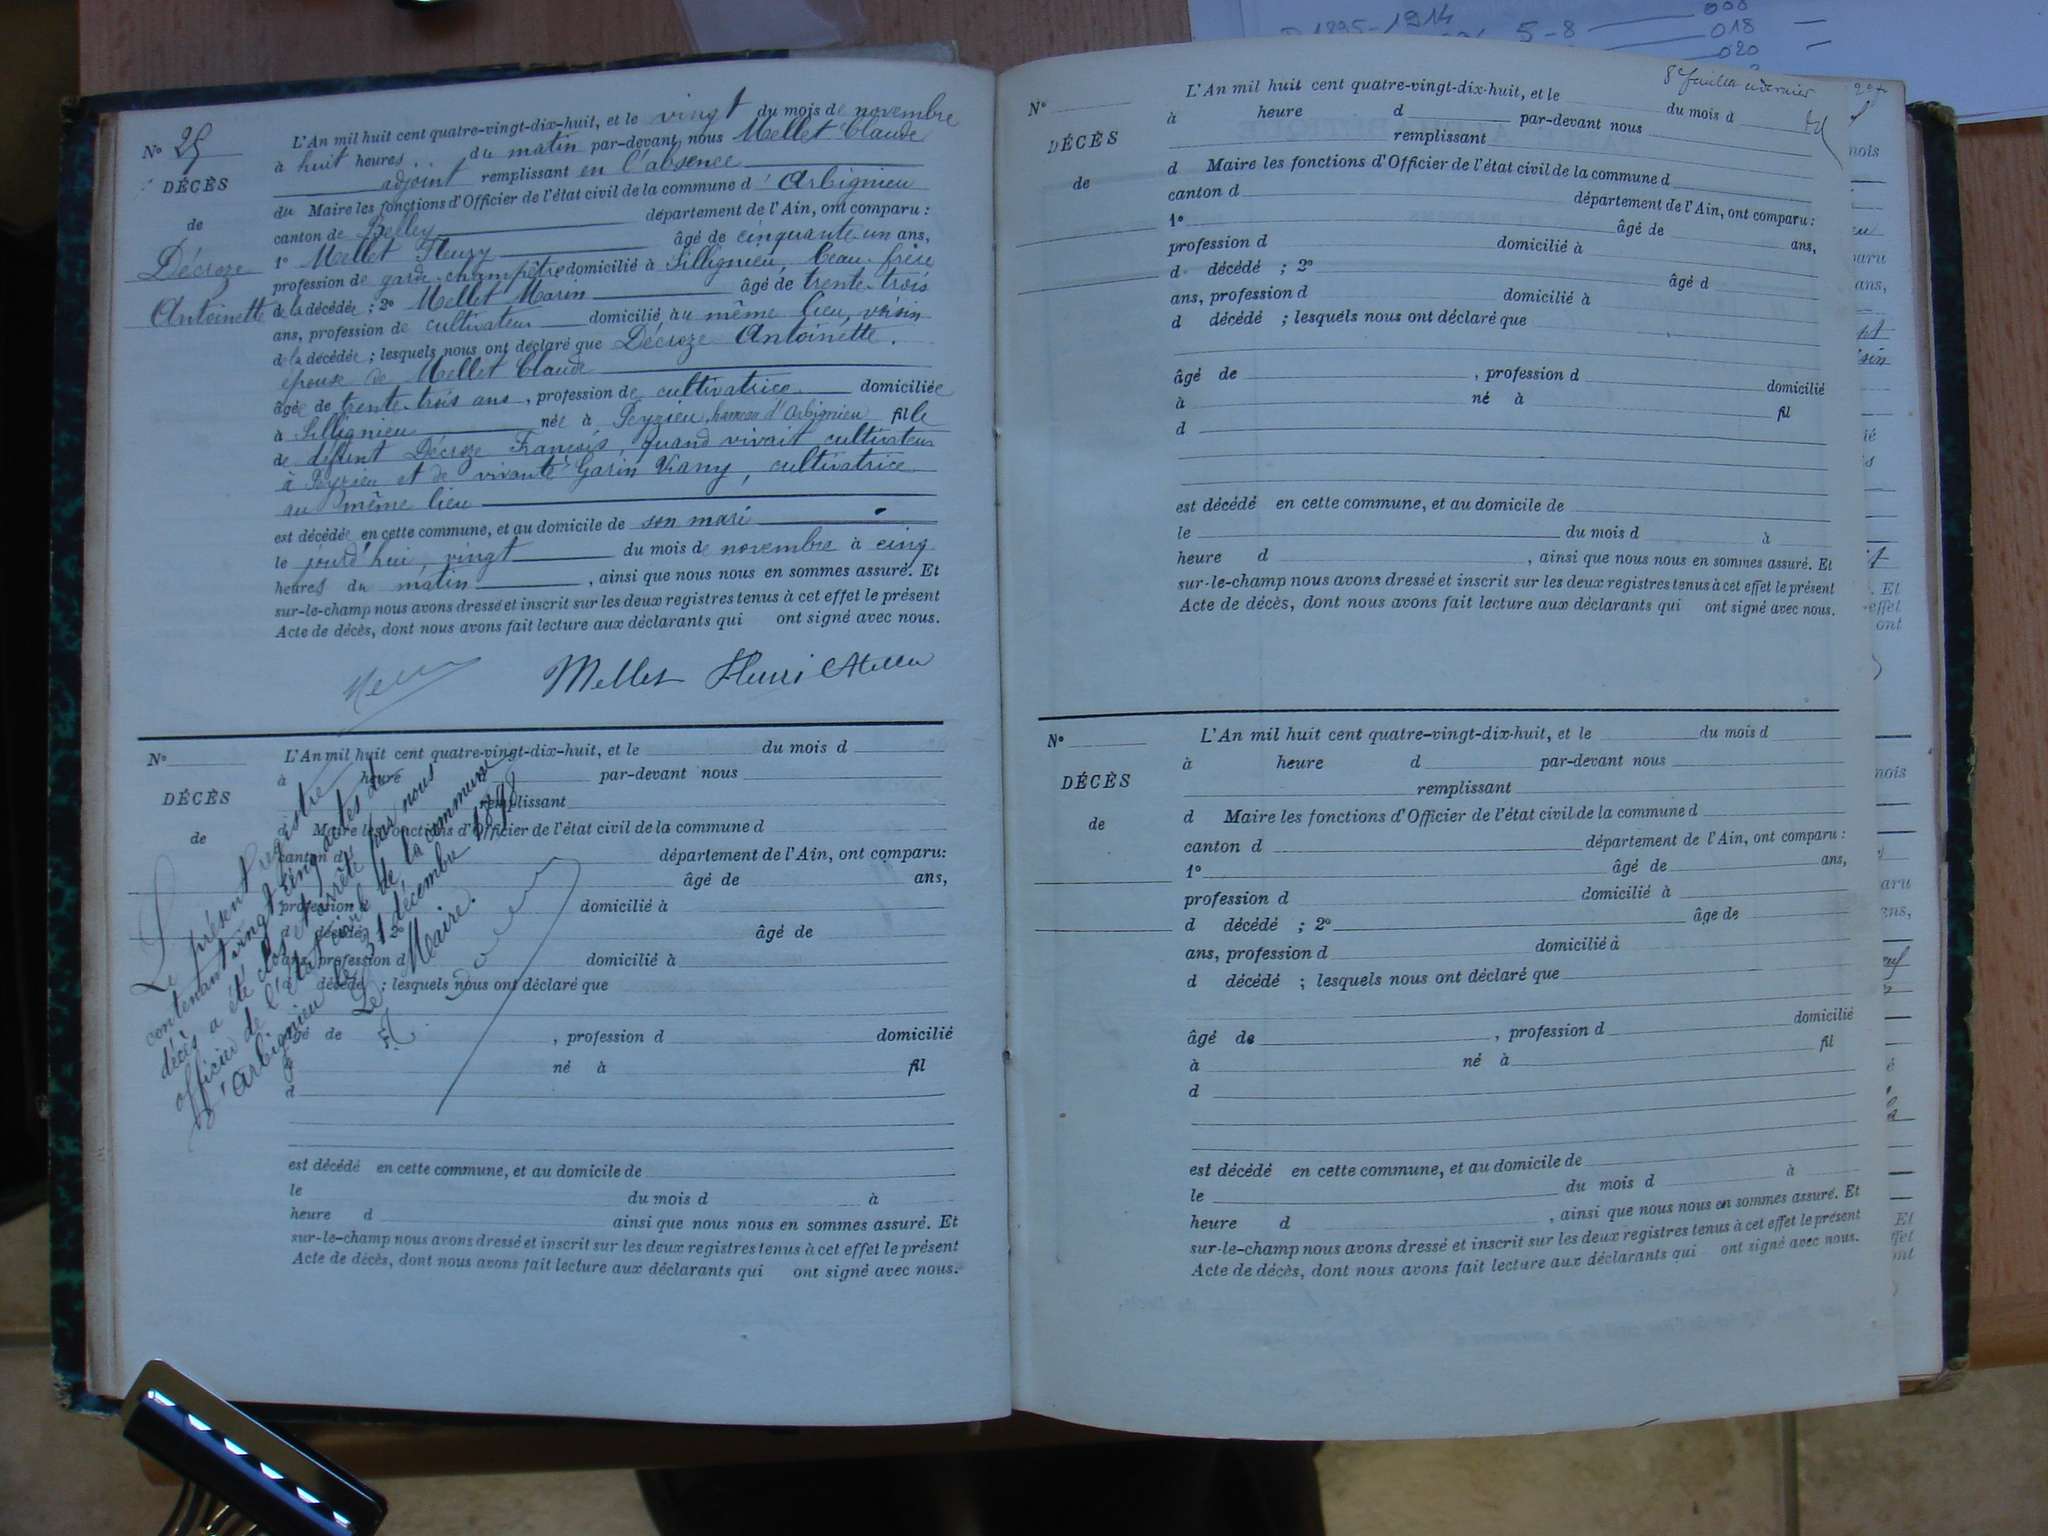 D 1895-1914
5-8
008
018
020
N° 25
DÉCÈS
de
Décroze
Antoinette
L'An mil huit cent quatre-vingt-dix-huit, et le vingt du mois de novembre
à huit heures du matin par-devant nous Mellet Claude
adjoint remplissant en l'absence
du Maire les fonctions d'Officier de l'état civil de la commune d'Arbignieu
canton de Belley département de l'Ain, ont comparu :
1° Mellet Fleury âgé de cinquante-un ans,
profession de garde-champêtre domicilié à Sillignieu, beau-frère
de la décédée ; 2° Mellet Marin âgé de trente-trois
ans, profession de cultivateur domicilié au même lieu, voisin
de la décédée ; lesquels nous ont déclaré que Décroze Antoinette,
épouse de Mellet Claude
âgée de trente-trois ans, profession de cultivatrice domiciliée
à Sillignieu née à Peyzieu, hameau d'Arbignieu fille
de défunt Décroze François, quand vivait cultivateur
à Peyzieu et de vivante Garin Viany, cultivatrice
au même lieu
est décédée en cette commune, et au domicile de son mari
le jourd'hui vingt du mois de novembre à cinq
heures du matin, ainsi que nous nous en sommes assuré. Et
sur-le-champ nous avons dressé et inscrit sur les deux registres tenus à cet effet le présent
Acte de décès, dont nous avons fait lecture aux déclarants qui ont signé avec nous.
Mellet
N°
DÉCÈS
de
L'An mil huit cent quatre-vingt-dix-huit, et le du mois d
à heure par-devant nous
remplissant
d Maire les fonctions d'Officier de l'état civil de la commune d
canton d département de l'Ain, ont comparu:
âgé de ans,
profession d domicilié à
d décédé 2° âgé de
ans, profession d domicilié à
d décédé ; lesquels nous ont déclaré que
âgé de , profession d domicilié
à né à fil
d
est décédé en cette commune, et au domicile de
le du mois d à
heure d ainsi que nous nous en sommes assuré. Et
sur-le-champ nous avons dressé et inscrit sur les deux registres tenus à cet effet le présent
Acte de décès, dont nous avons fait lecture aux déclarants qui ont signé avec nous.
Le présent registre
contenant vingt cinq actes de
décès a été clos et arrêté par nous
officier de l'état civil de la commune
d'Arbignieu le 31 décembre 1898
Le Maire.
8e feuillet et dernier
N°
DÉCÈS
de
L'An mil huit cent quatre-vingt-dix-huit, et le du mois d
à heure d par-devant nous
remplissant
d Maire les fonctions d'Officier de l'état civil de la commune d
canton d département de l'Ain, ont comparu :
1° âgé de ans,
profession d domicilié à
d décédé ; 2° âgé d
ans, profession d domicilié à
d décédé ; lesquels nous ont déclaré que
âgé de , profession d domicilié
à né à fil
d
est décédé en cette commune, et au domicile de
le du mois d à
heure d , ainsi que nous nous en sommes assuré. Et
sur-le-champ nous avons dressé et inscrit sur les deux registres tenus à cet effet le présent
Acte de décès, dont nous avons fait lecture aux déclarants qui ont signé avec nous.
N°
DÉCÈS
de
L'An mil huit cent quatre-vingt-dix-huit, et le du mois d
à heure d par-devant nous
remplissant
d Maire les fonctions d'Officier de l'état civil de la commune d
canton d département de l'Ain, ont comparu :
1° âgé de ans,
profession d domicilié à
d décédé ; 2° âge de
ans, profession d domicilié à
d décédé ; lesquels nous ont déclaré que
âgé de , profession d domicilié
à né à fil
d
est décédé en cette commune, et au domicile de
le du mois d à
heure d , ainsi que nous nous en sommes assuré. Et
sur-le-champ nous avons dressé et inscrit sur les deux registres tenus à cet effet le présent
Acte de décès, dont nous avons fait lecture aux déclarants qui ont signé avec nous.